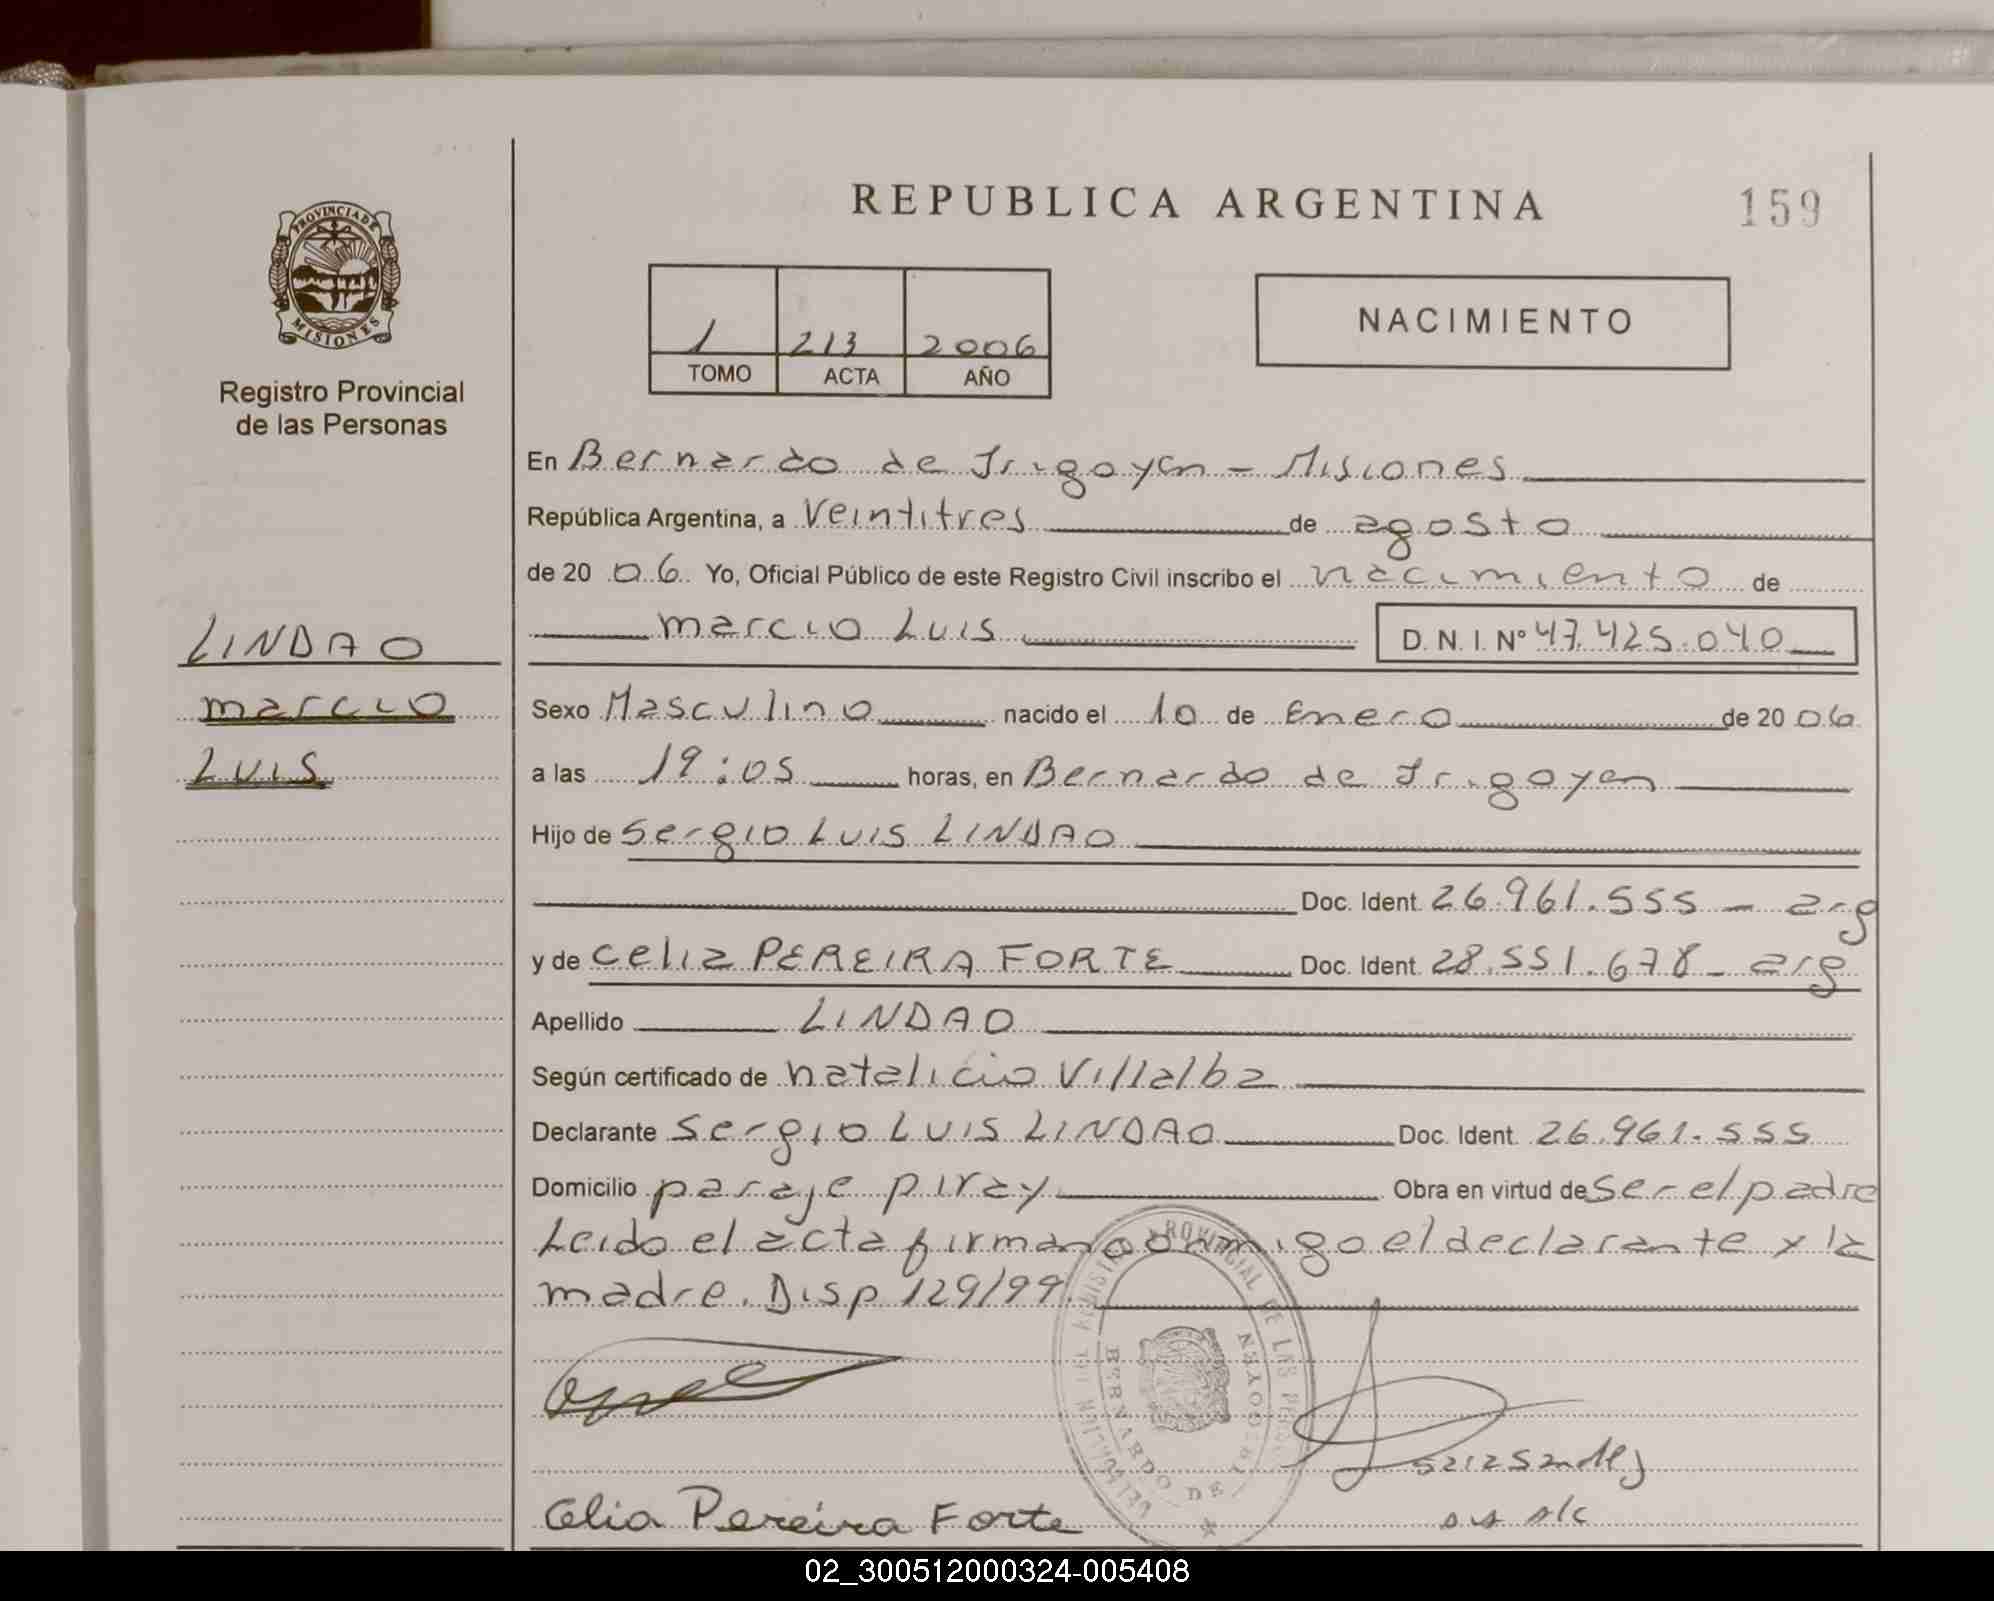 REPUBLICA ARGENTINA
159
PROVINCIA DE
MISIONES
Registro Provincial
de las Personas
1 213 2006
TOMO ACTA AÑO
NACIMIENTO
En Bernardo de Irigoyen - Misiones
República Argentina, a Veintitres de agosto
de 20 06. Yo, Oficial Público de este Registro Civil inscribo el nacimiento de
marcio LUIS D. N. I. Nº 47.425.040
LINDAO
marcio
LUIS
Sexo Masculino nacido el 10 de Enero de 20 06
a las 19:05 horas, en Bernardo de Irigoyen
Hijo de Sergio LUIS LINDAO
Doc. Ident. 26.961.555 - arg
y de celia PEREIRA FORTE Doc. Ident. 28.551.678 - arg
Apellido LINDAO
Según certificado de natalicio Villalba
Declarante Sergio LUIS LINDAO Doc. Ident. 26.961.555
Domicilio paraje piray Obra en virtud de ser el padre
Leido el acta firman conmigo el declarante y la
madre. Disp 129/99.
DELEGACION DEL REGISTRO PROVINCIAL DE LAS PERSONAS
BERNARDO DE IRIGOYEN
Celia Pereira Forte
02_300512000324-005408